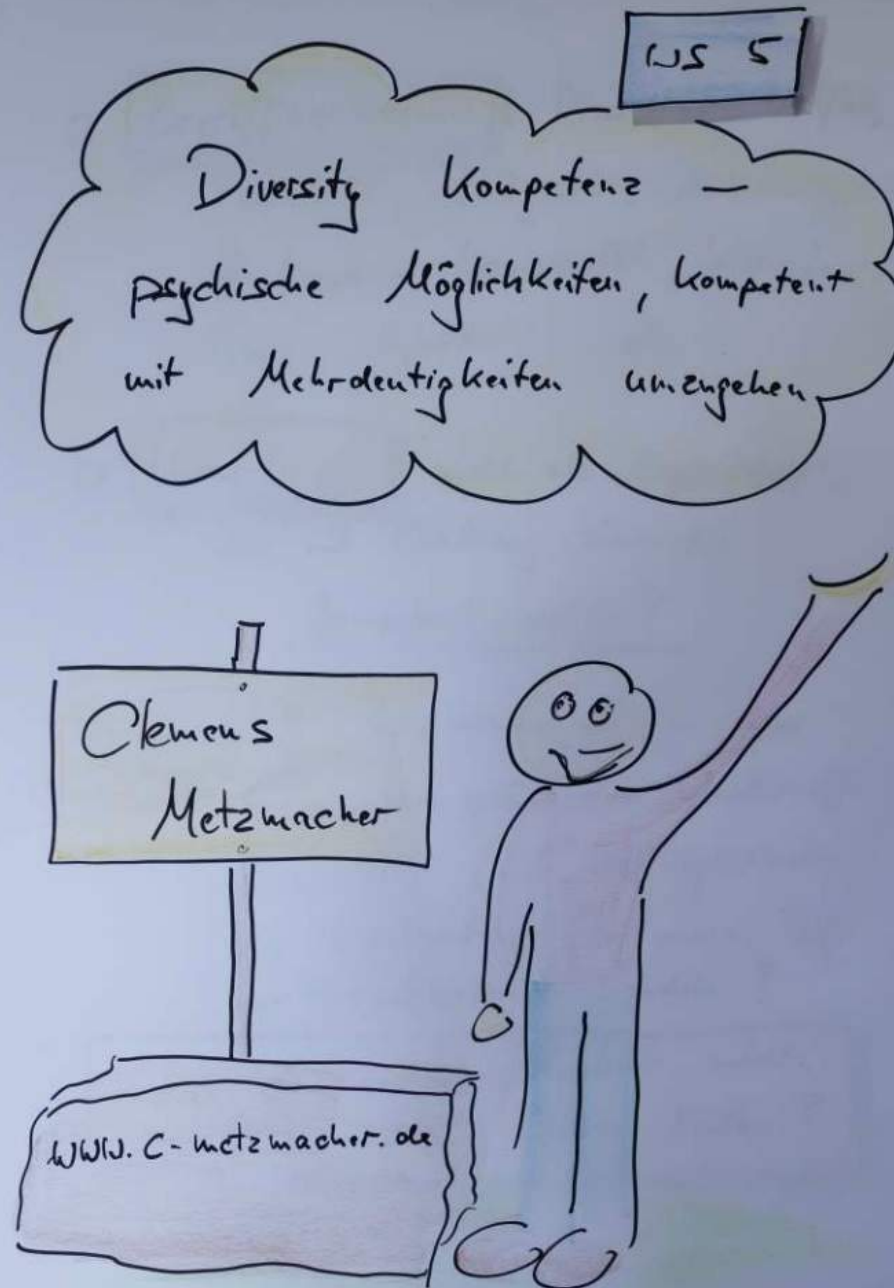 WS 5
Diversity Kompetenz —
psychische Möglichkeiten, kompetent
mit Mehrdeutigkeiten umzugehen
Clemens
Metzmacher
www.c-metzmacher.de